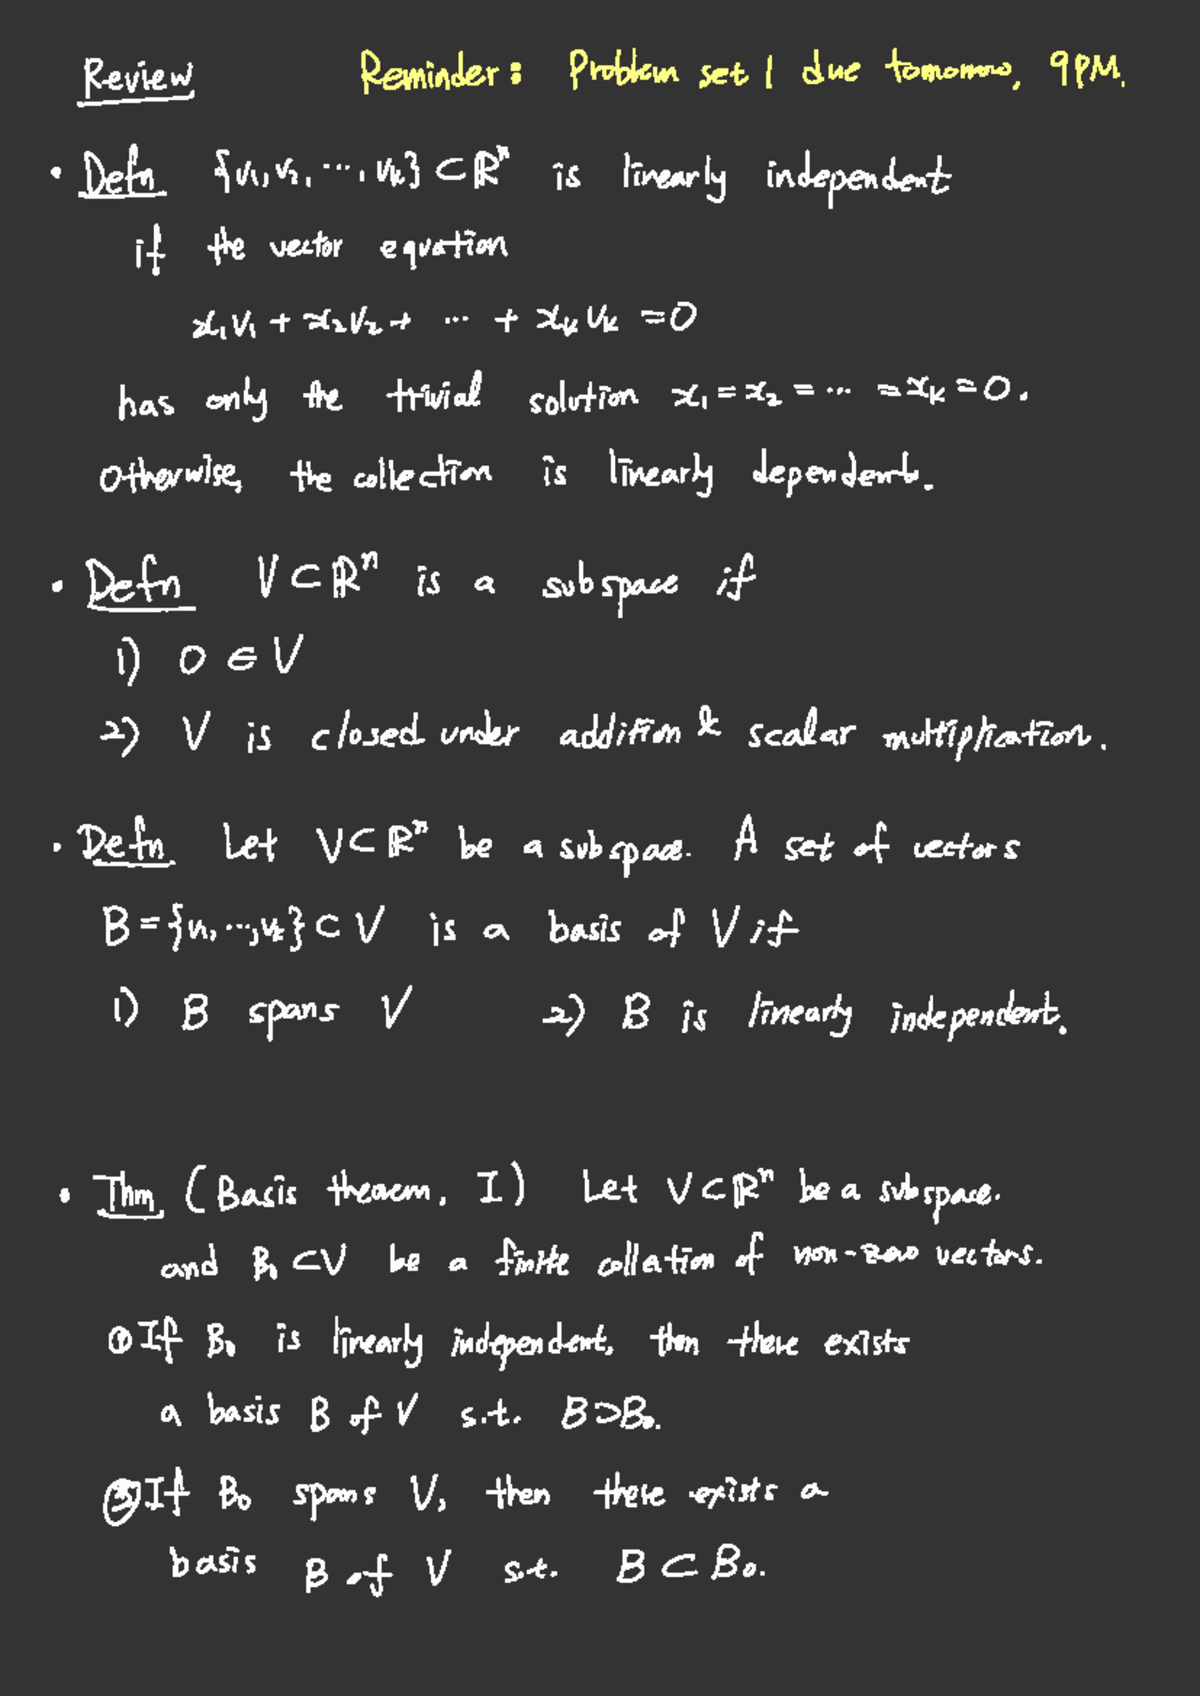 Review
Reminder: Problem set 1 due tomorrow, 9PM.
• Defn {v₁, v₂, ⋯, vₖ} ⊂ ℝⁿ is linearly independent
if the vector equation
x₁v₁ + x₂v₂ + ⋯ + xₖvₖ = 0
has only the trivial solution x₁ = x₂ = ⋯ = xₖ = 0.
Otherwise, the collection is linearly dependent.
• Defn V ⊂ ℝⁿ is a subspace if
1) 0 ∈ V
2) V is closed under addition & scalar multiplication.
• Defn Let V ⊂ ℝⁿ be a subspace. A set of vectors
B = {v₁, ⋯, vₖ} ⊂ V is a basis of V if
1) B spans V 2) B is linearly independent.
• Thm (Basis theorem, I) Let V ⊂ ℝⁿ be a subspace.
and B₀ ⊂ V be a finite collation of non-zero vectors.
① If B₀ is linearly independent, then there exists
a basis B of V s.t. B ⊃ B₀.
② If B₀ spans V, then there exists a
basis B of V s.t. B ⊂ B₀.